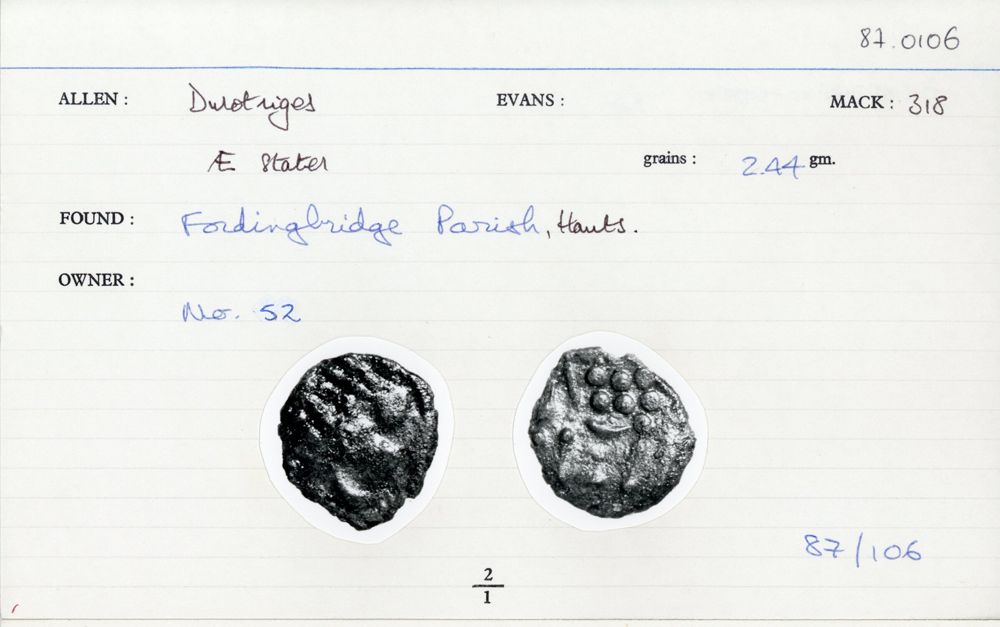 87.0106
ALLEN : Durotriges EVANS : MACK : 318
Æ Stater grains : 2.44 gm.
FOUND : Fordingbridge Parish, Hants.
OWNER :
No. 52
87/106
2
1